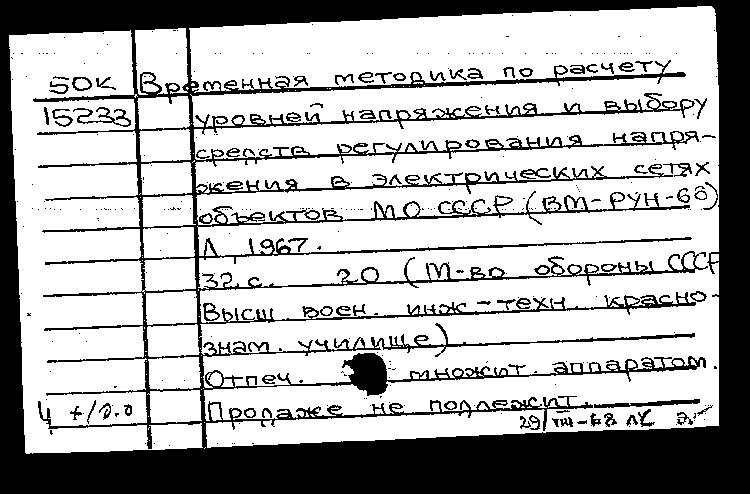 50К Временная методика по расчету
15233 уровней напряжения и выбору
средств регулирования напря-
жения в электрических сетях
объектов МО СССР (ВМ-РУН-66)
Л., 1967.
32.с. 20 (М-во обороны СССР
Высш. воен. инж-техн. красно-
знам. училище).
Отпеч. множит. аппаратом.
Продаже не подлежит.
29/VIII-68